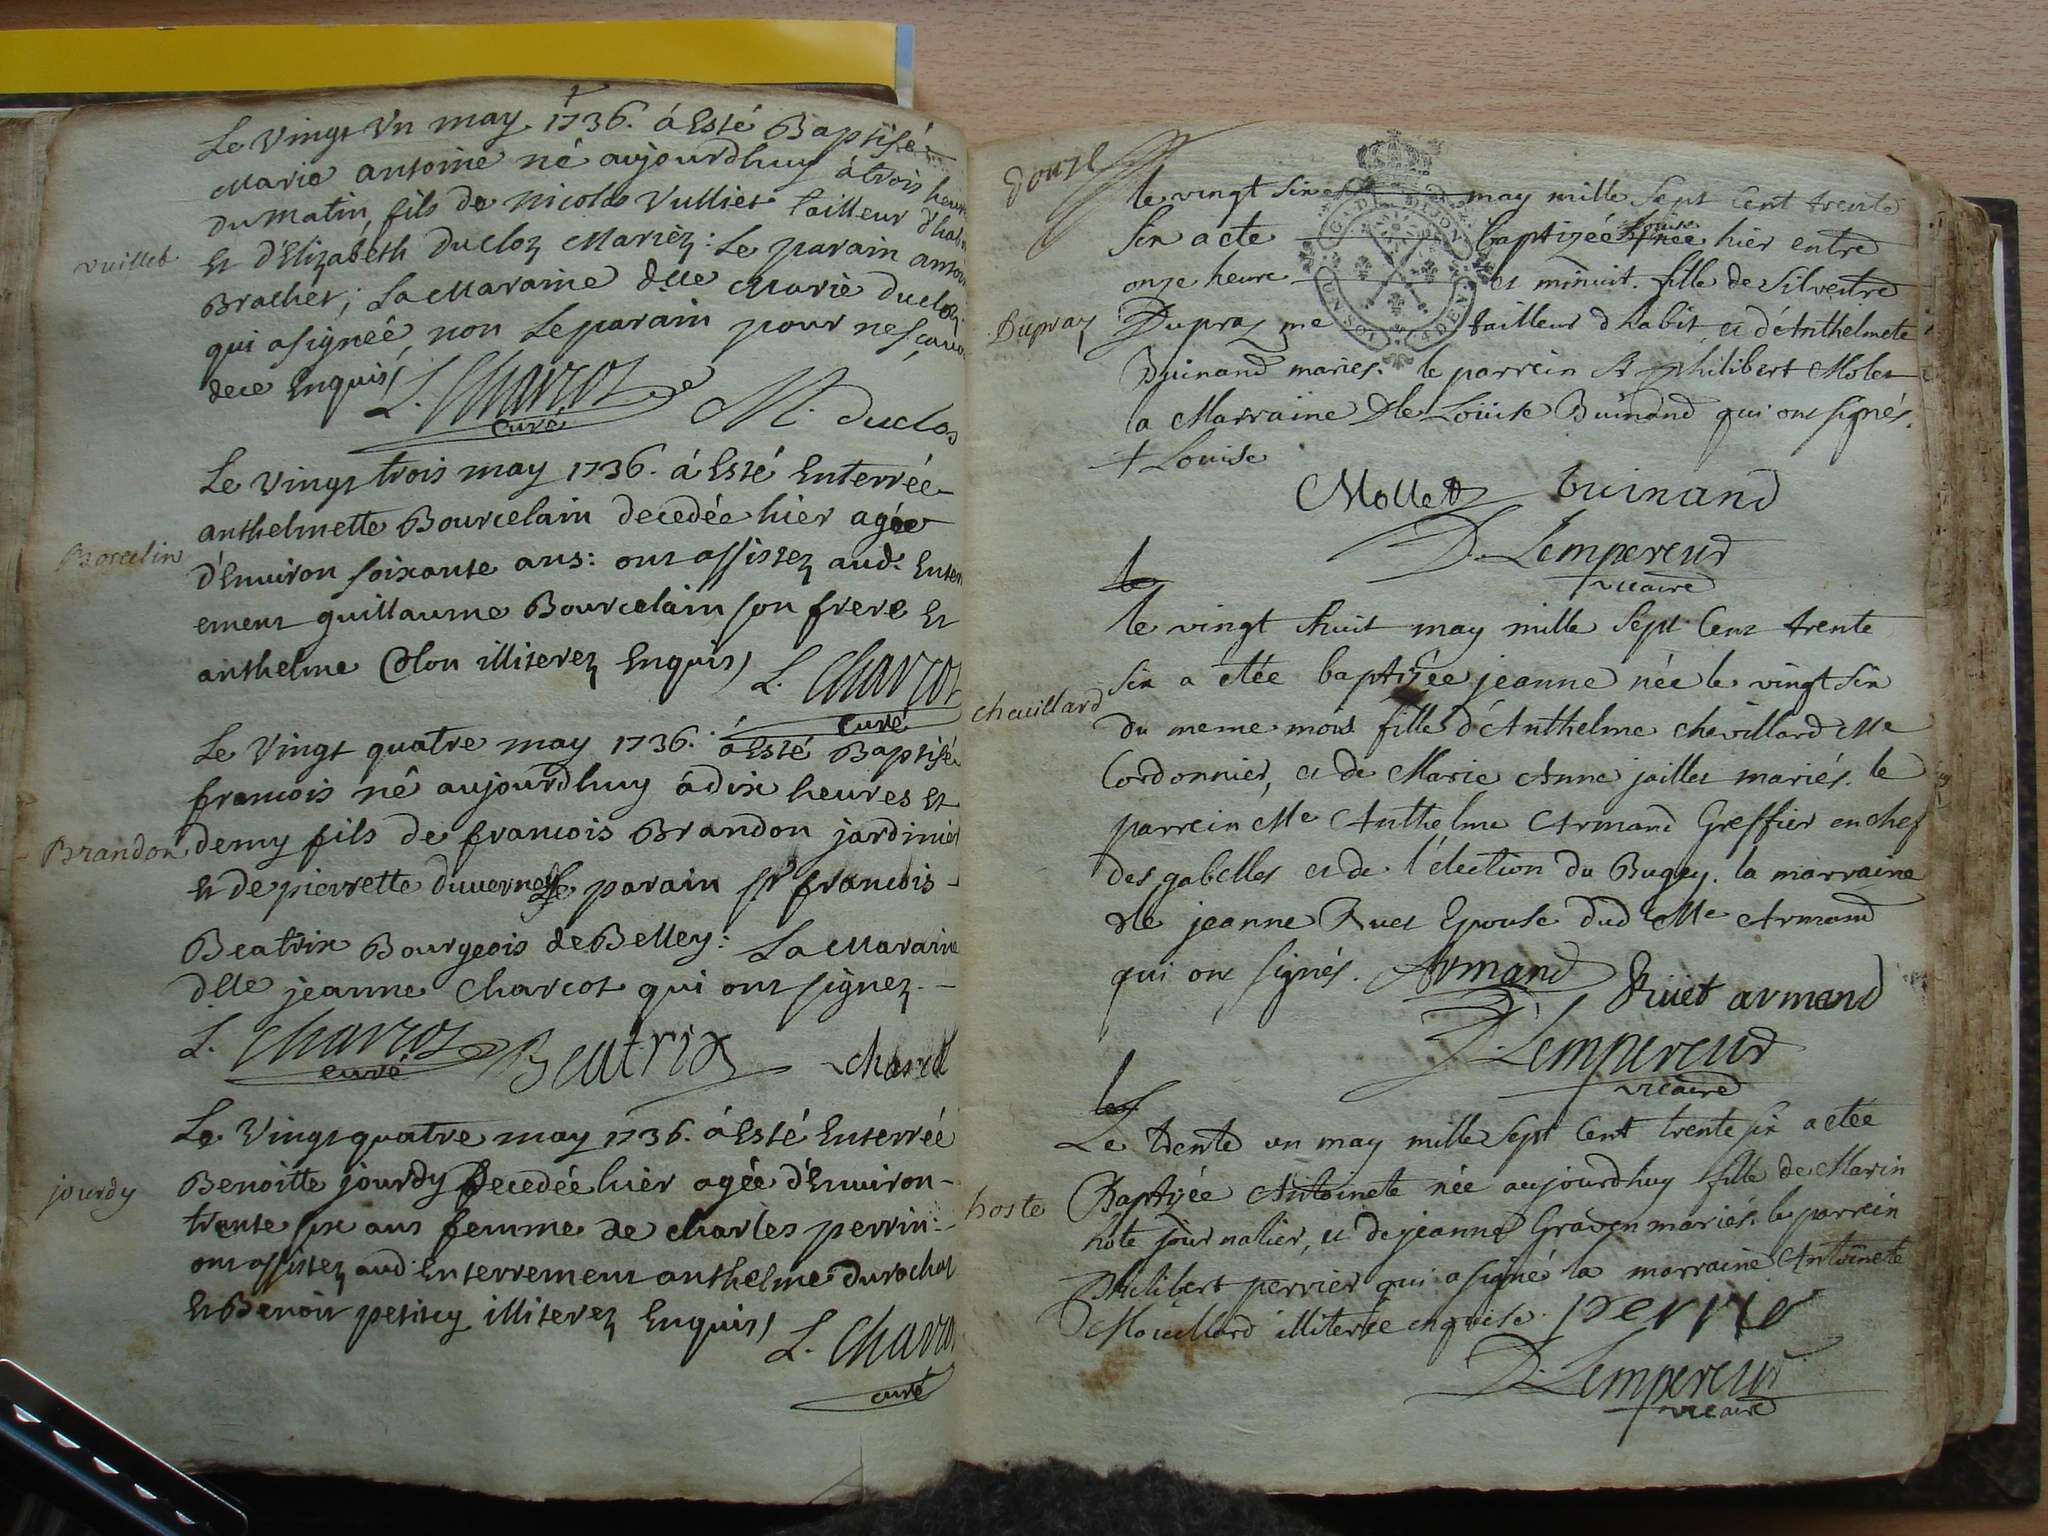 Le Vingt Vn may 1736. á Esté Baptisé
Marie antoine né aujourdhuy á trois heur
du matin, fils de Nicolas Vulliet tailleur d'hab
Et d'Elizabeth Ducloz Mariéz: Le parain antoi
Brachet; La Maraine dlle Marie Ducloz
qui a signeé, non Le parain pour ne sçavo
dece Enquis,
vuillet
L. Charcot
curé
M. Duclos
Le Vingt trois may 1736. á Esté Enterrée
anthelmette Bourcelain decedée hier agée
d'Enuiron soixante ans: ont assistez aud. Enterr
ement guillaume Bourcelain son frere Et
anthelme Colon illiterez Enquis,
Borcelin
L. Charcot
curé
Le Vingt quatre may 1736. á Esté Baptisé
francois né aujourdhuy á dix heures Et
demy fils de francois Brandon jardinier
Et de pierrette duuerney Le parain sr francois
Beatrix Bourgeois de Belley: La Maraine
dlle jeanne Charcot qui ont signez.
Brandon
L. Charcot
curé
Beatrix
Charcot
Le Vingt quatre may 1736. á Esté Enterrée
Benoitte jourdy Decedée hier agée d'Enuiron
trente six ans femme de Charles perrin:
ont assistez aud. Enterrement anthelme durochat
Et Benoit petitcy illiterez Enquis,
jourdy
L. Charcot
curé
douze
le vingt six may mille Sept Cent trente
Six a eté baptizée + née hier entre
Louise
onze heure et minuit. fille de Silvestre
Dupraz me tailleur d habit et d'Anthelmete
Buinand mariés. le parrein Sr philibert Molet
la Marraine dlle Loüise Buinand qui ont signés.
+ Louise
Dupraz
GN. DE DIJON
Mollet buinand
D. Lempereur
vicaire
le
le vingt huit may mille Sept Cent trente
Six a etée baptizée jeanne née le vingt Six
du meme mois fille d'Anthelme Chevillard Me
Cordonnier, et de Marie Anne jaillet mariés. le
parrein Me Anthelme Armand Greffier en chef
des gabelles et de l'élection du Bugey. la marraine
dlle jeanne Ruet Epouse dud Me Armand
qui ont signés.
chevillard
Armand Ruet armand
D. Lempereur
vicaire
le
Le trente un may mille Sept Cent trente six a etée
Baptizée Antoinete née aujourdhuy fille de Marin
hote journalier, et de jeanne Graven mariés. le parrein
Philibert perrier qui a signé la marraine Antoinete
Mouillard illiterée enquise.
hoste
perrie
D. Lempereur
vicaire